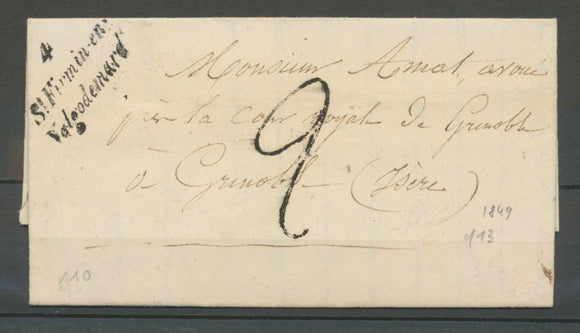 4
St Firmin-en-
Valgodemard
Monsieur Amat, avoué
près la cour royale de Grenoble
à Grenoble (Isère)
2
1849
110